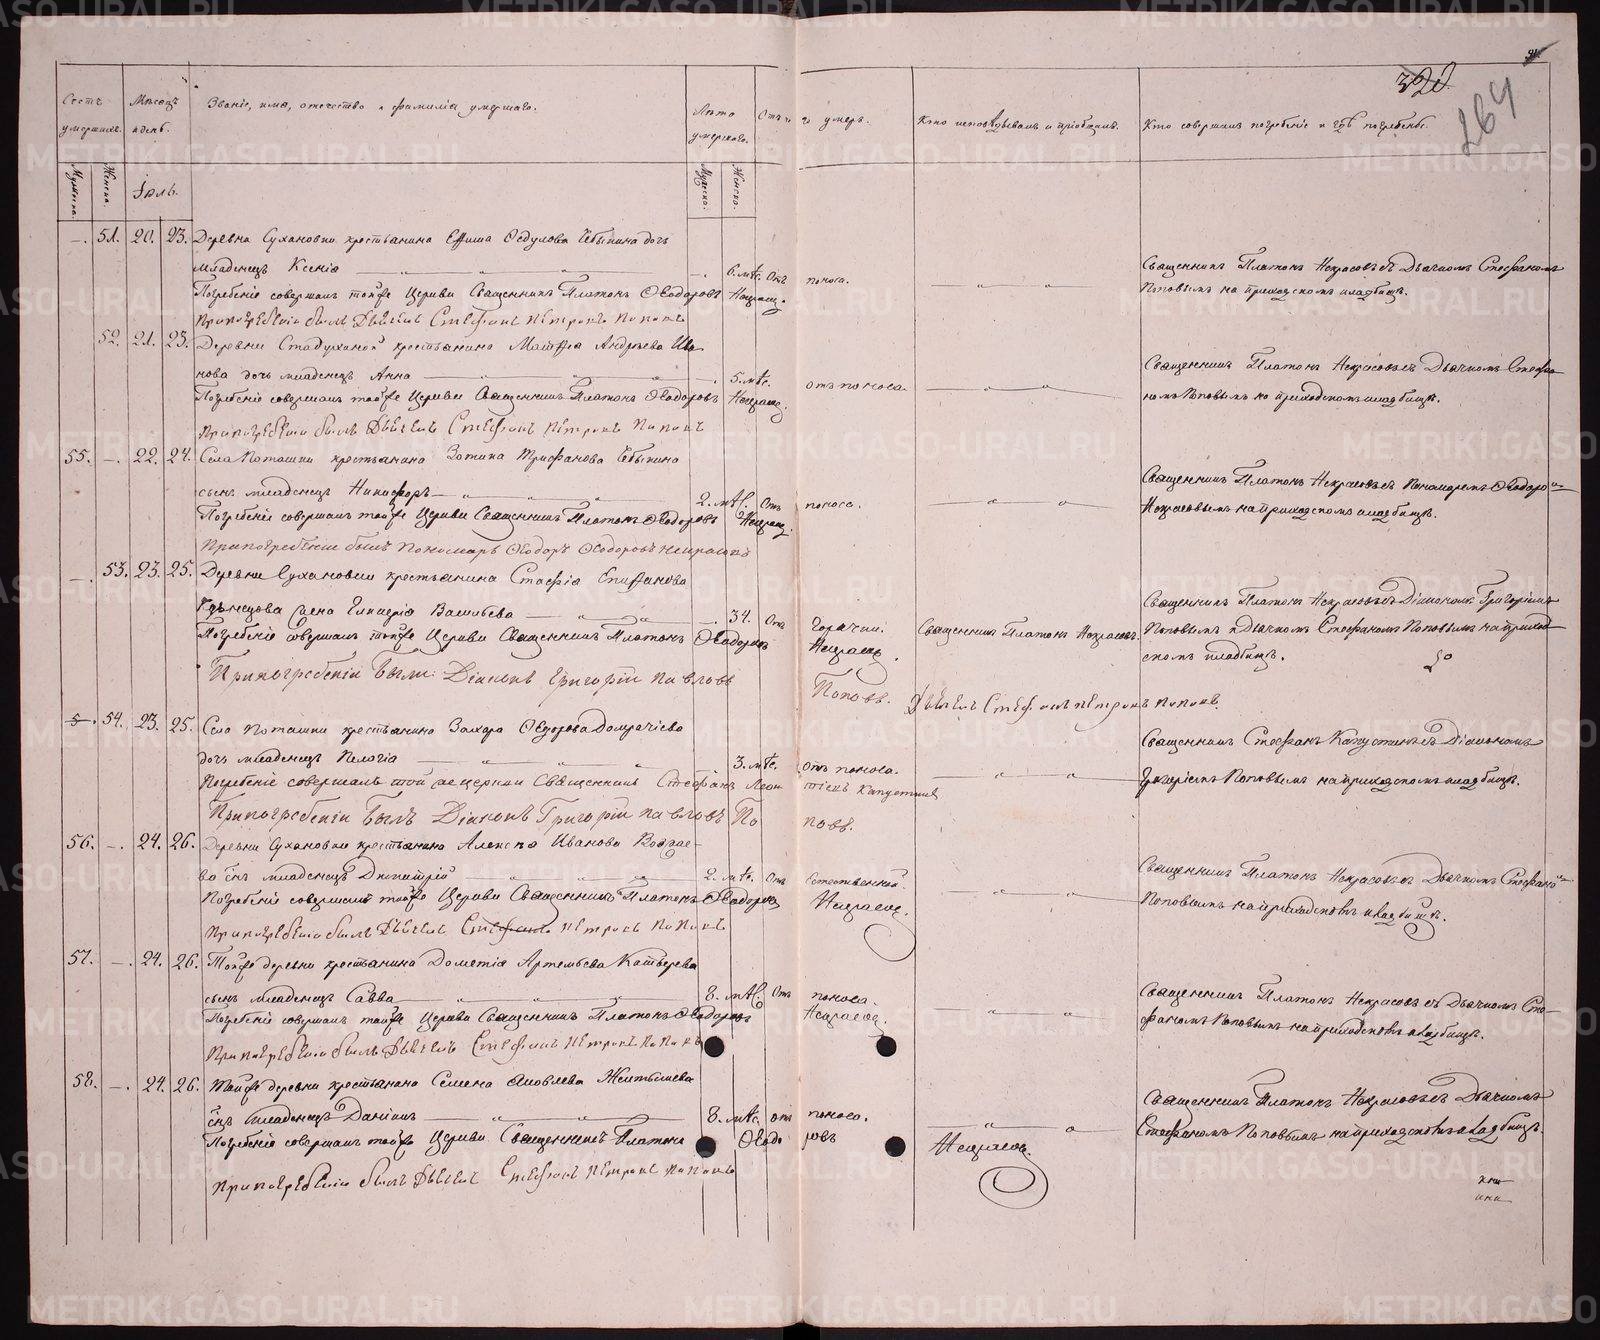 METRIKI.GASO-URAL.RU
320
264
Счетъ умершихъ.
Мѣсяцъ и день.
Званіе, имя, отчество и фамилія умершаго.
Лѣта умершаго.
Отъ чего умеръ.
Кто исповѣдывалъ и пріобщалъ.
Кто совершалъ погребеніе и гдѣ погребены.
Мужеска. Женска. Іюль. Мужеска. Женска.
—. 51. 20. 23. Деревни Сухановки крестьянина Ефима Федулова дочь
младенецъ Ксенія — 6. мѣс. Отъ поноса.
Священникъ Платонъ Некрасовъ съ Дьячкомъ Стефаномъ
Поповымъ на приходскомъ кладбищѣ.
Погребеніе совершалъ тойже Церкви Священникъ Платонъ Ѳеодоровъ Некрасовъ.
При погребеніи былъ Дьячекъ Стефанъ Петровъ Поповъ
52. 21. 23. Деревни крестьянина Андреева Ива
нова дочь младенецъ Анна — 5. мѣс. отъ поноса.
Священникъ Платонъ Некрасовъ съ Дьячкомъ Стефа
номъ Поповымъ на приходскомъ кладбищѣ.
Погребеніе совершалъ тойже Церкви Священникъ Платонъ Ѳеодоровъ Некрасовъ.
При погребеніи былъ Дьячекъ Стефанъ Петровъ Поповъ
55. —. 22. 24. Села Поташки крестьянина Зотика Трифанова
сынъ младенецъ Никифоръ — 2. мѣс. Отъ поноса.
Священникъ Платонъ Некрасовъ съ Пономаремъ Ѳеодоро
Некрасовымъ на приходскомъ кладбищѣ.
Погребеніе совершалъ тойже Церкви Священникъ Платонъ Ѳеодоровъ Некрасовъ.
При погребеніи былъ Пономарь Ѳеодоръ Ѳеодоровъ Некрасовъ
—. 53. 23. 25. Деревни Сухановки крестьянина Епифанова
жена Васильева — 34. Отъ горячки.
Священникъ Платонъ Некрасовъ.
Священникъ Платонъ Некрасовъ съ Діакономъ Григоріемъ
Поповымъ и Дьячкомъ Стефаномъ Поповымъ на приход
скомъ кладбищѣ.
Погребеніе совершалъ тойже Церкви Священникъ Платонъ Ѳеодоровъ Некрасовъ.
При погребеніи были: Діаконъ Григорій Павловъ Поповъ. Дьячекъ Стефанъ Петровъ Поповъ.
54. 23. 25. Села Поташки крестьянина Захара Ѳедорова
дочь младенецъ Пелагія — 3. мѣс. отъ поноса.
Священникъ Стефанъ Капустинъ съ Діакономъ
Григоріемъ Поповымъ на приходскомъ кладбищѣ.
Погребеніе совершалъ той же церкви Священникъ Стефанъ Леон тіевъ Капустинъ
При погребеніи былъ Діаконъ Григорій Павловъ По повъ.
56. —. 24. 26. Деревни Сухановки крестьянина Иванова
сынъ младенецъ Димитрій — 2. мѣс. Отъ естественной.
Священникъ Платонъ Некрасовъ съ Дьячкомъ Стефаномъ
Поповымъ на приходскомъ кладбищѣ.
Погребеніе совершалъ тойже Церкви Священникъ Платонъ Ѳеодоровъ Некрасовъ.
При погребеніи былъ Дьячекъ Стефанъ Петровъ Поповъ
57. —. 24. 26. Тойже деревни крестьянина Дометія Артемьева
сынъ младенецъ Савва — 8. мѣс. Отъ поноса.
Священникъ Платонъ Некрасовъ съ Дьячкомъ Сте
фаномъ Поповымъ на приходскомъ кладбищѣ.
Погребеніе совершалъ тойже Церкви Священникъ Платонъ Ѳеодоровъ Некрасовъ.
При погребеніи былъ Дьячекъ Стефанъ Петровъ Поповъ
58. —. 24. 26. Тойже деревни крестьянина Семена Яковлева
сынъ младенецъ Даніилъ — 8. мѣс. отъ поноса.
Священникъ Платонъ Некрасовъ съ Дьячкомъ
Стефаномъ Поповымъ на приходскомъ кладбищѣ.
Погребеніе совершалъ тойже Церкви Священникъ Платонъ Ѳеодо ровъ Некрасовъ.
При погребеніи былъ Дьячекъ Стефанъ Петровъ Поповъ